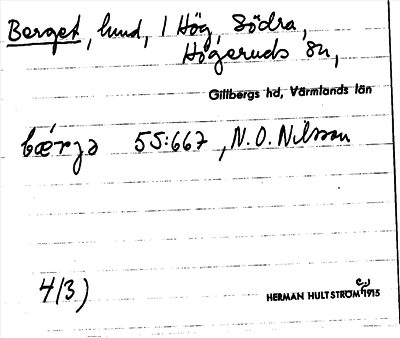 Berget, lund, 1 Hög, Södra,
Högeruds sn,
Gillbergs hd, Värmlands län
bærja 55:667, N.O. Nilsson
4/3)
HERMAN HULTSTRÖM 1915